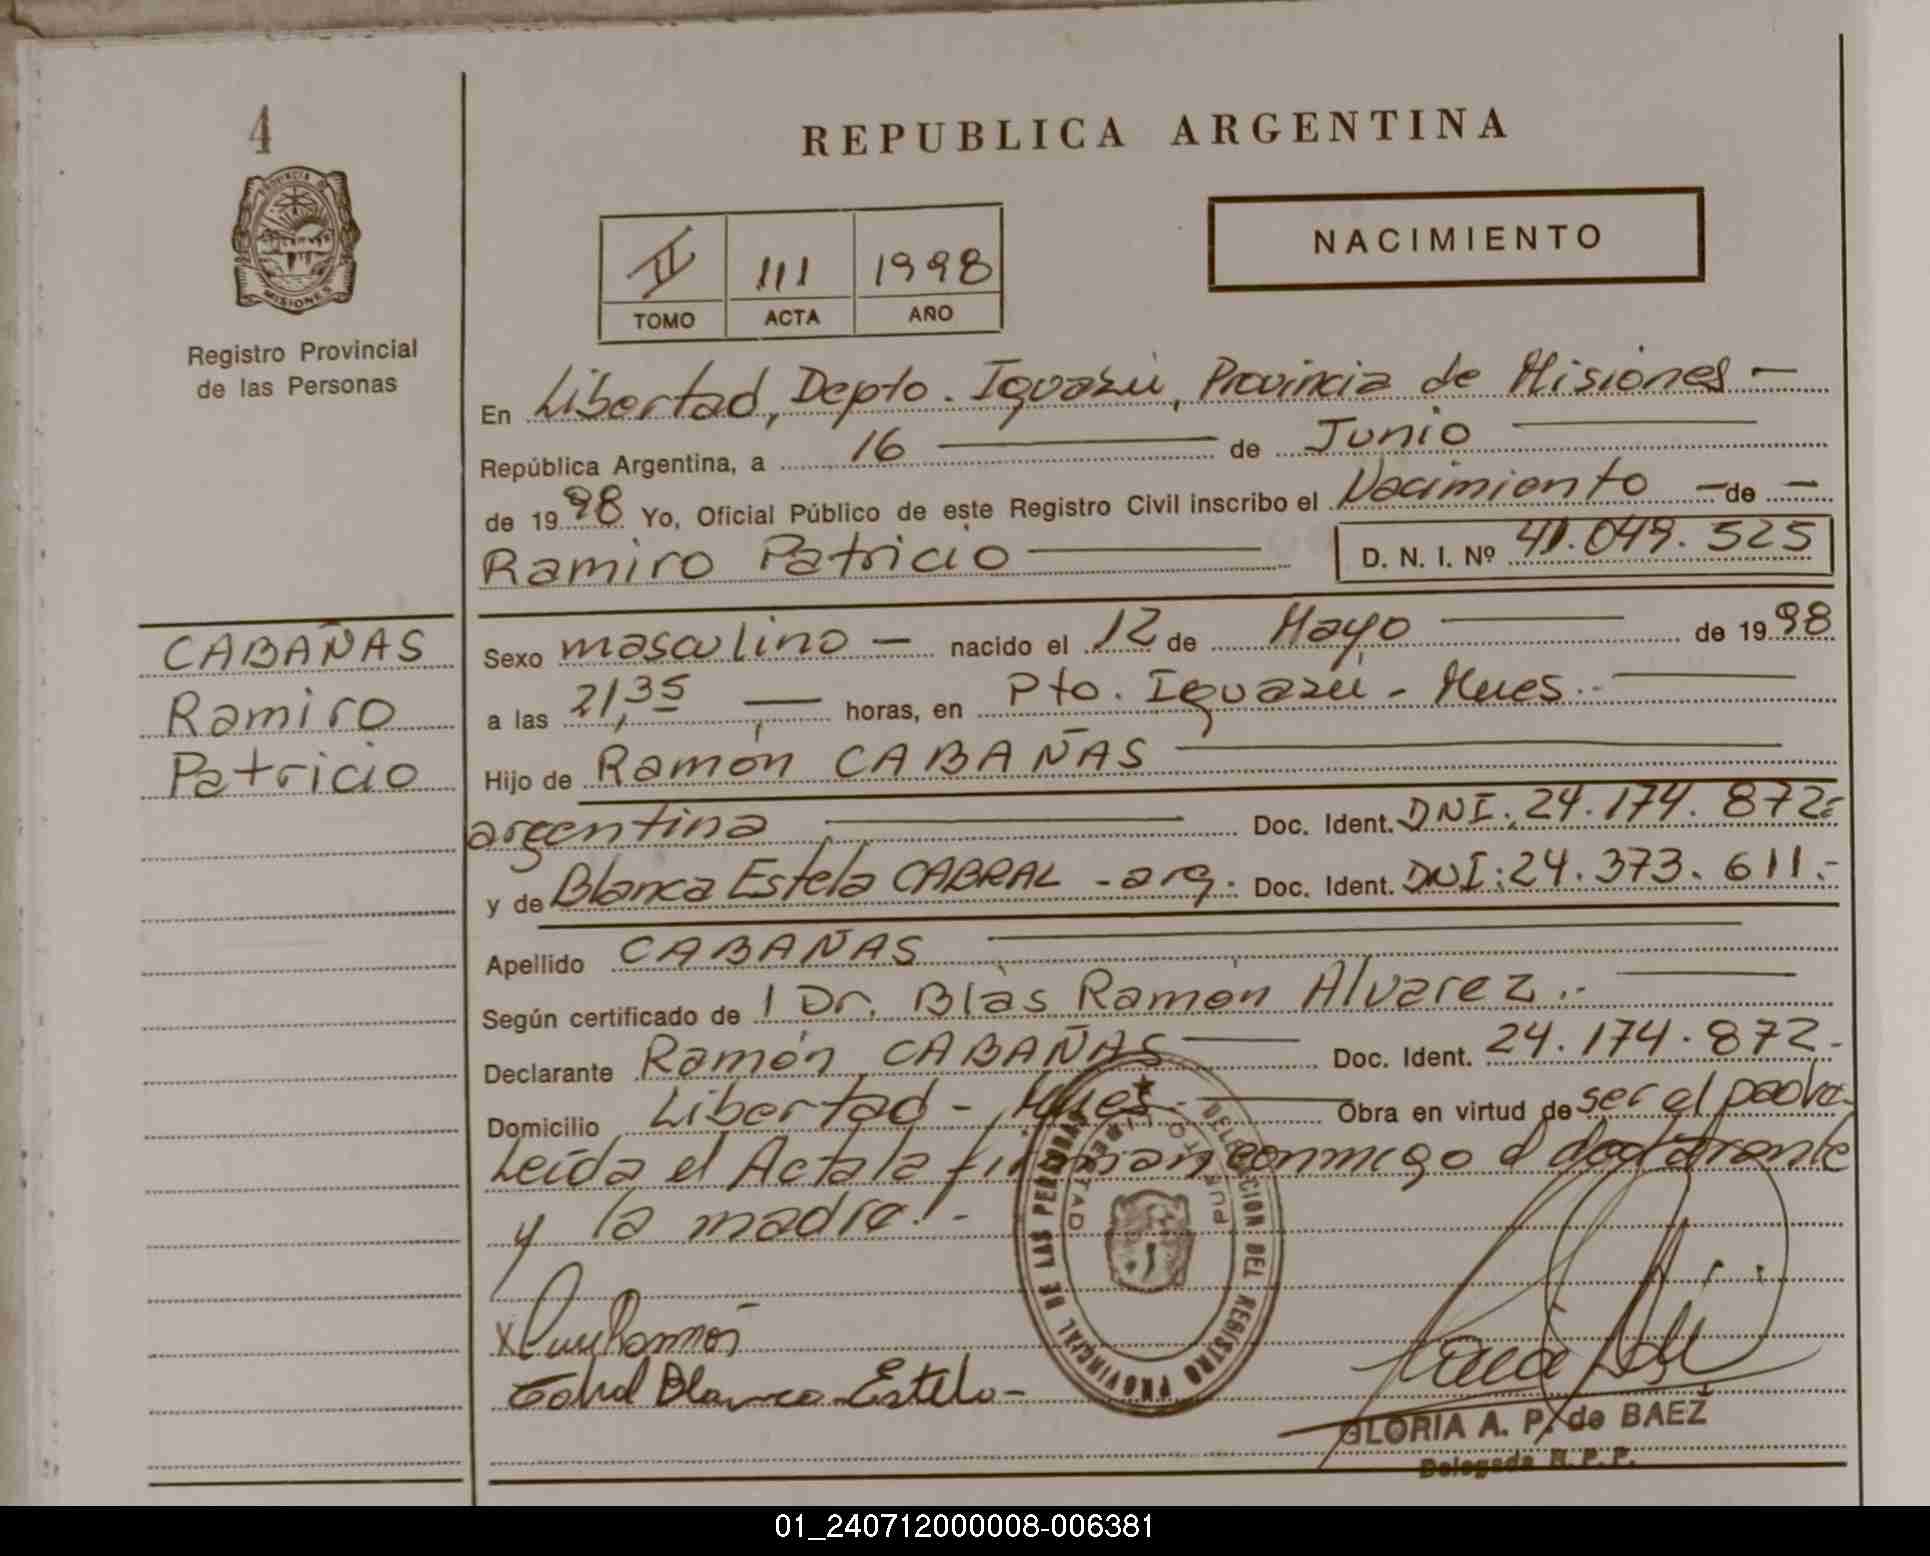 4
PROVINCIA DE
MISIONES
Registro Provincial
de las Personas
REPUBLICA ARGENTINA
II 111 1998
TOMO ACTA AÑO
NACIMIENTO
En Libertad, Depto. Iguazú, Provincia de Misiones -
República Argentina, a 16 de Junio
de 1998 Yo, Oficial Público de este Registro Civil inscribo el Nacimiento - de -
Ramiro Patricio D. N. I. Nº 41.049.525
CABAÑAS
Ramiro
Patricio
Sexo masculino - nacido el 12 de Mayo de 1998
a las 21,35 horas, en Pto. Iguazú - Mnes.-
Hijo de Ramón CABAÑAS
argentina Doc. Ident. DNI: 24.174.872-
y de Blanca Estela CABRAL - arg. Doc. Ident. DNI: 24.373.611.-
Apellido CABAÑAS
Según certificado de l Dr. Blàs Ramón Alvarez.-
Declarante Ramón CABAÑAS Doc. Ident. 24.174.872-
Domicilio Libertad - Mnes.- Obra en virtud de ser el padre-
Leída el Acta la firman conmigo el declarante
y la madre.-
DELEGACION DEL REGISTRO PROVINCIAL DE LAS PERSONAS
PUERTO LIBERTAD
x Ramón
Cabral Blanca Estela-
GLORIA A. P. de BAEZ
Delegada R. P. P.
01_240712000008-006381